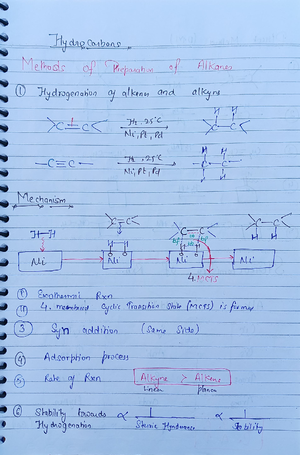 Hydrocarbons
Methods of Preparation of Alkanes
① Hydrogenation of alkenes and alkyne
>C=C< H₂, 25°C Ni, Pt, Pd H H -C-C-
-C≡C- H₂, 25°C Ni, Pt, Pd H H -C-C-
Mechanism
H-H >C=C< >C=C< H H
Ni H H Ni Ni Ni
4 MCTS
① Exothermic Rxn
② 4-membered Cyclic Transition State (MCTS) is formed
③ Syn addition (Same Side)
④ Adsorption process
⑤ Rate of Rxn Alkyne > Alkene
Linear Planar
⑥ Stability towards Hydrogenation ∝ 1/Steric Hindrance ∝ 1/Stability